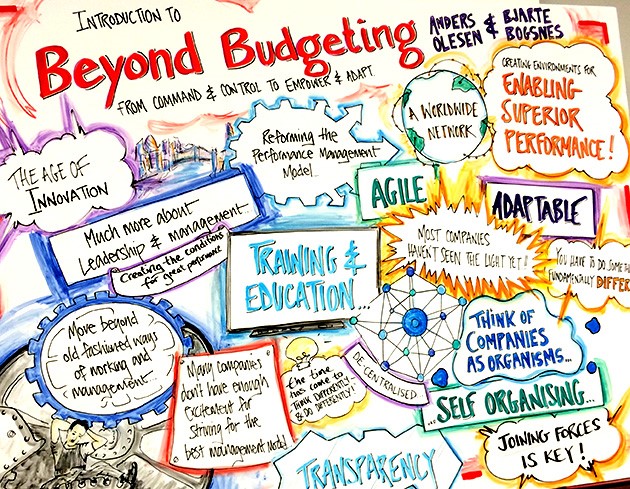 INTRODUCTION TO
Beyond Budgeting
FROM COMMAND & CONTROL TO EMPOWER & ADAPT.
ANDERS & BJARTE
OLESEN & BOGSNES
CREATING ENVIRONMENTS FOR
ENABLING
SUPERIOR
PERFORMANCE!
A WORLDWIDE
NETWORK
Reforming the
Performance Management
Model...
THE AGE OF
INNOVATION
AGILE
ADAPTABLE
Much more about
Leadership & management...
Creating the conditions
for great performance
TRAINING &
EDUCATION...
MOST COMPANIES
HAVEN'T SEEN THE LIGHT YET!
YOU HAVE TO DO
FUNDAMENTALLY
Move beyond
old fashioned ways
of working and
management...
Many companies
don't have enough
excitement for
striving for the
best management model
the time
has come to
THINK DIFFERENTLY
& DO DIFFERENTLY!
DECENTRALISED
THINK OF
COMPANIES
AS ORGANISMS...
SELF ORGANISING...
JOINING FORCES
IS KEY!
TRANSPARENCY